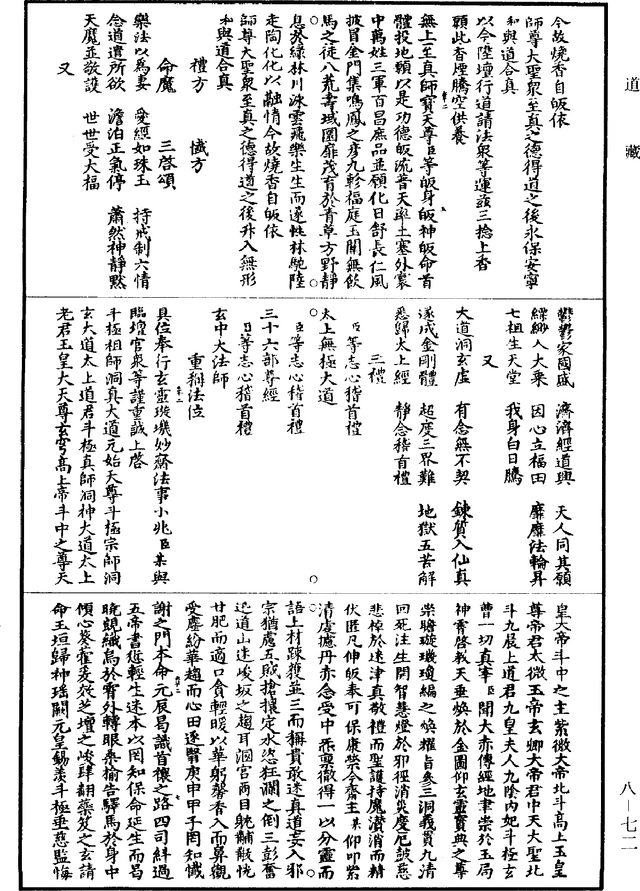 道藏
今故燒香自皈依
師尊大聖衆至真之德得道之後永保安寧
和與道合真
以今陞壇行道請法衆等運茲三捻上香
願此香煙騰空供養
無上至真師寶天尊臣等皈身皈神皈命首
體投地願以是功德皈流普天率土塞外寰
中萬姓三軍百昌庶品並願化日舒長仁風
披冒金門集鳴鳳之彦九軫福庭玉關無飲
馬之徒八荒壽域園扉茂育於青草方野靜
息於綠林川泳雲飛樂生生而遂性林馳陸
走陶化化以融情今故燒香自皈依
師尊大聖衆至真之德得道之後升入無形
與道合真
禮方 懴方
命魔 三啓頌
樂法以為妻 愛經如珠玉 持戒制六情
念道遣所欲 澹泊正氣停 蕭然神靜默
天魔並敬護 世世受大福
又
鬱鬱家國盛 濟濟經道興 天人同其願
縹緲入大乘 因心立福田 靡靡法輪昇
七祖生天堂 我身白日騰
又
大道洞玄虛 有念無不契 鍊質入仙真
遂成金剛體 超度三界難 地獄五苦解
悉歸太上經 靜念稽首禮
三禮
臣等志心稽首禮
太上無極大道
臣等志心稽首禮
三十六部尊經
臣等志心稽首禮
玄中大法師
重稱法位
具位奉行玄靈璇璣妙齋法事小兆臣某與
臨壇官衆等謹重誠上啓
斗極祖師洞真大道元始天尊斗極宗師洞
玄大道太上道君斗極真師洞神大道太上
老君玉皇大天尊玄穹高上帝斗中之尊天
皇大帝斗中之主紫微大帝北斗高上玉皇
尊帝君太微玉帝玄卿大帝君中天大聖北
斗九晨上道君九皇夫人九陰内妃斗極玄
曹一切真宰臣聞大赤傳經地聿崇於玉局
神霄啓教天垂煥於金圖仰玄靈寶典之尊
崇瞻璇璣瓊編之煥耀旨參三洞義貫九清
回死注生開智慧燈於邪徑消災度厄鼓慈
悲棹於迷津真敬禮而聖護持魔潰消而精
伏匿凡伸皈奉可保康榮今齋主某仰叩紫
清虔攄丹赤念受中炁禀微得一以分靈而
語上材疎獲並三而稱貴敢迷真道妄入邪
宗猶處五賊搶攘定水恣狂瀾之倒三彭奮
迅道山迷峻坂之趨耳溺宮商目眈黼黻恍
甘肥而適口貪輕暖以華躬馨香入而鼻觀
受塵紛華趨而心田逐腎庚申甲子罔知懴
謝之門本命元辰曷識首禳之路四司糾過
五帝書愆輕生迷本以罔知保命延生而曷
曉覩織烏於霄外轉眼桑榆告驛馬於身中
傾心葵藿爰茲芝壇之峻肆翻藥笈之玄請
命玉垣歸神瑶闕元皇錫羨斗極垂慈監悔
八—七二